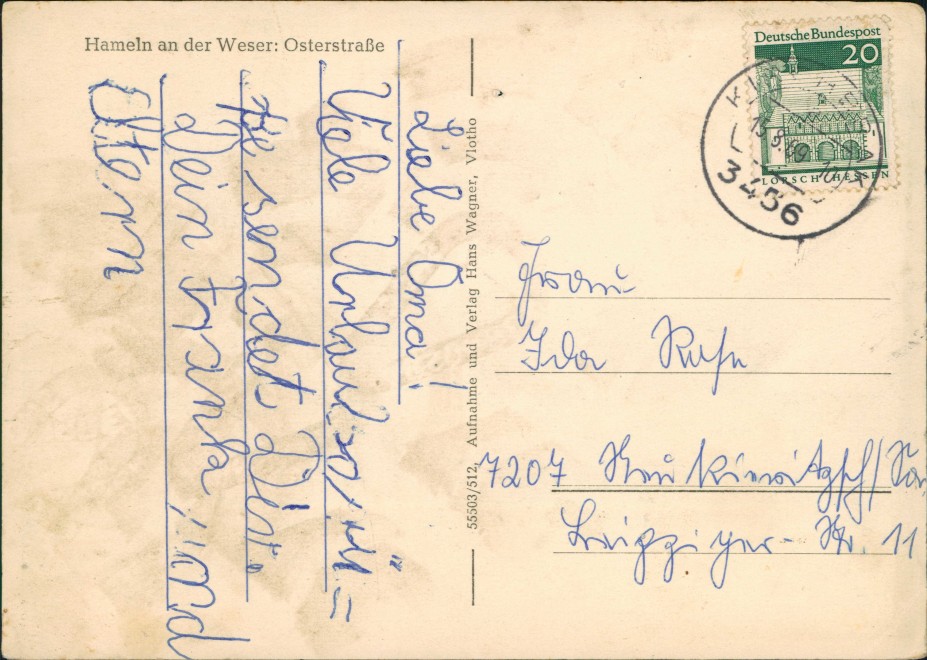 Hameln an der Weser: Osterstraße
Liebe Oma!
Viele Urlaubsgrü=
ße sendet Dir
Dein Frank und
Eltern
55503/512, Aufnahme und Verlag Hans Wagner, Vlotho
Deutsche Bundespost
20
LORSCH/HESSEN
3456
Frau
Ida
7207
Leipziger-Str. 11